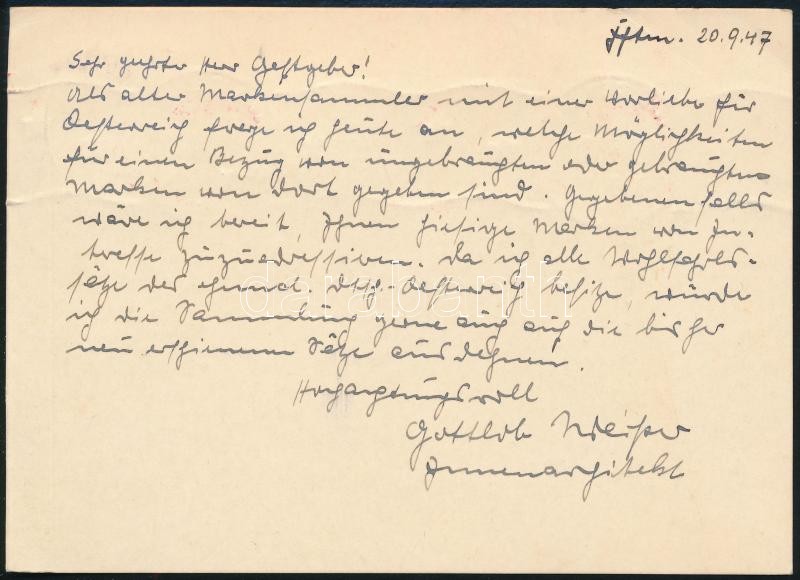 20.9.47
Sehr geehrter Herr Gastgeber!
Als alter Markensammler mit einer Vorliebe für
Oesterreich frage ich heute an, welche Möglichkeiten
für einen Bezug von ungebrauchten oder gebrauchten
Marken von dort gegeben sind. Gegebenenfalls
wäre ich bereit, Ihnen hiesige Marken von In-
tresse zuzuadressieren. Da ich alle Wohlfahrts-
sätze des ehemal. Dtsch-Oesterreich besitze, würde
ich die Sammlung gerne auch auf die bisher
neu erschienenen Sätze ausdehnen.
Hochachtungsvoll
Gottlob
Innenarchitekt
darabanth